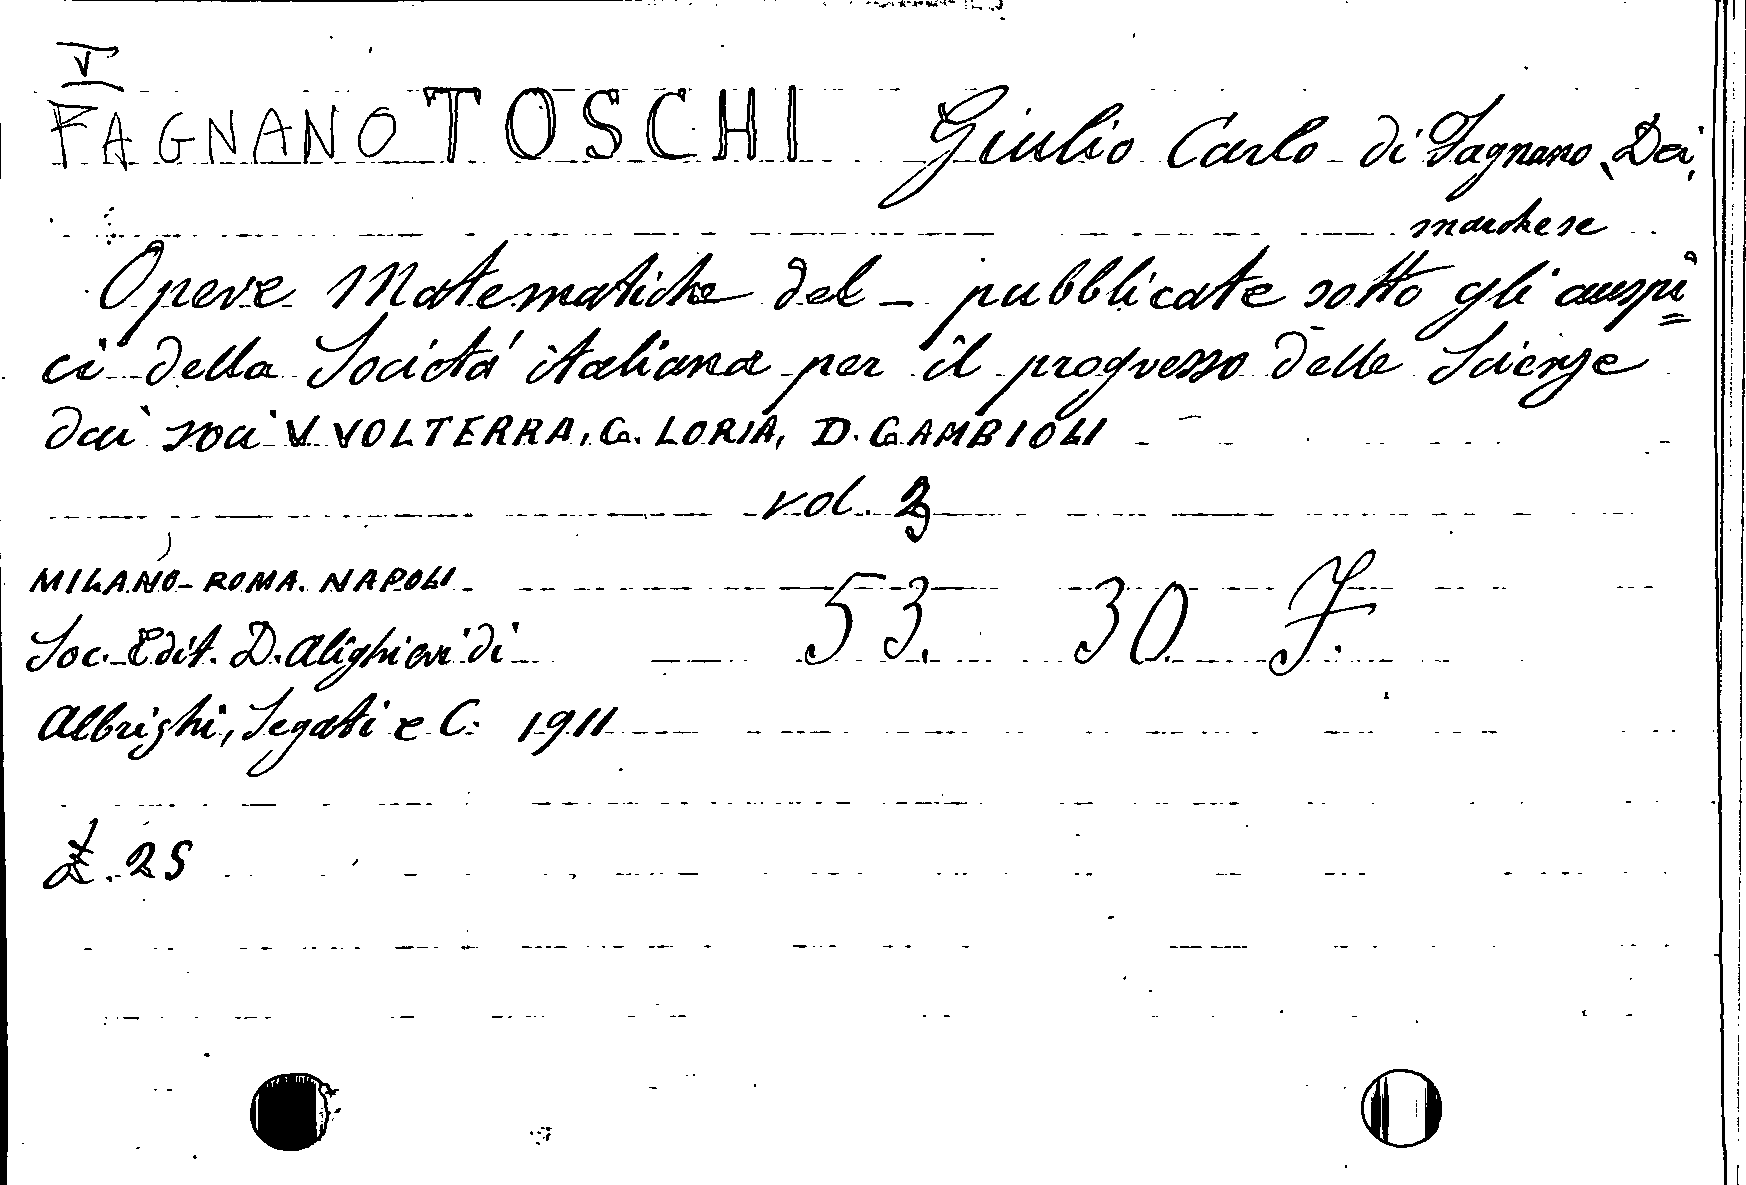 V
FAGNANO TOSCHI Giulio Carlo di Fagnano, Dei,
marchese
Opere Matematiche del - pubblicate sotto gli auspi=
ci della Societá italiana per il progresso delle Scienze
dai soci V. VOLTERRA, G. LORIA, D. GAMBIOLI
vol. 3
MILANO - ROMA. NAPOLI
Soc. Edit. D. Alighieri di
Albrighi, Segati e C. 1911
53. 30 F.
£. 25